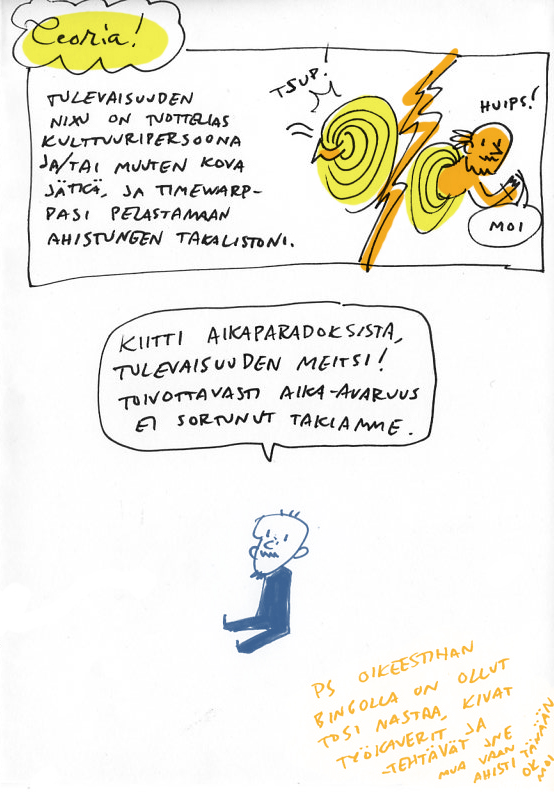 Teoria!
TULEVAISUUDEN
NIXU ON TUOTTELIAS
KULTTUURIPERSOONA
JA/TAI MUUTEN KOVA
JÄTKÄ, JA TIMEWARP-
PASI PELASTAMAAN
AHISTUNEEN TAKALISTONI.
TSUP!
HUIPS!
MOI
KIITTI AIKAPARADOKSISTA,
TULEVAISUUDEN MEITSI!
TOIVOTTAVASTI AIKA-AVARUUS
EI SORTUNUT TAKIAMME.
PS OIKEESTIHAN
BINGOLLA ON OLLUT
TOSI NASTAA, KIVAT
TYÖKAVERIT JA
-TEHTÄVÄT JNE
MUA VAAN
AHISTI TÄNÄÄN
OK
MOI